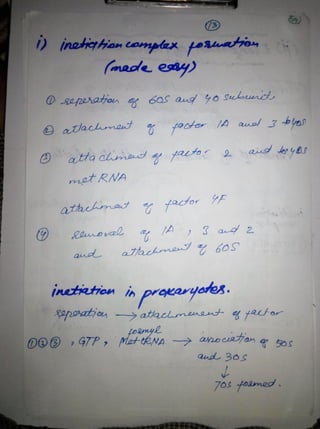 (13)
i) inetiation complex formation
(made easy)
① seperation of 60S and 40 subunit
② attachment of factor 1A and 3 to 40S
③ attachment of factor 2 and to 40S
met RNA
attachment of factor 4F
④ removal of 1A, 3 and 2
and attachment of 60S
inetiation in procaryotes.
seperation → attachment of factor
①②③, GTP, formyl Met tRNA → association of 50S
and 30S
↓
70S formed.